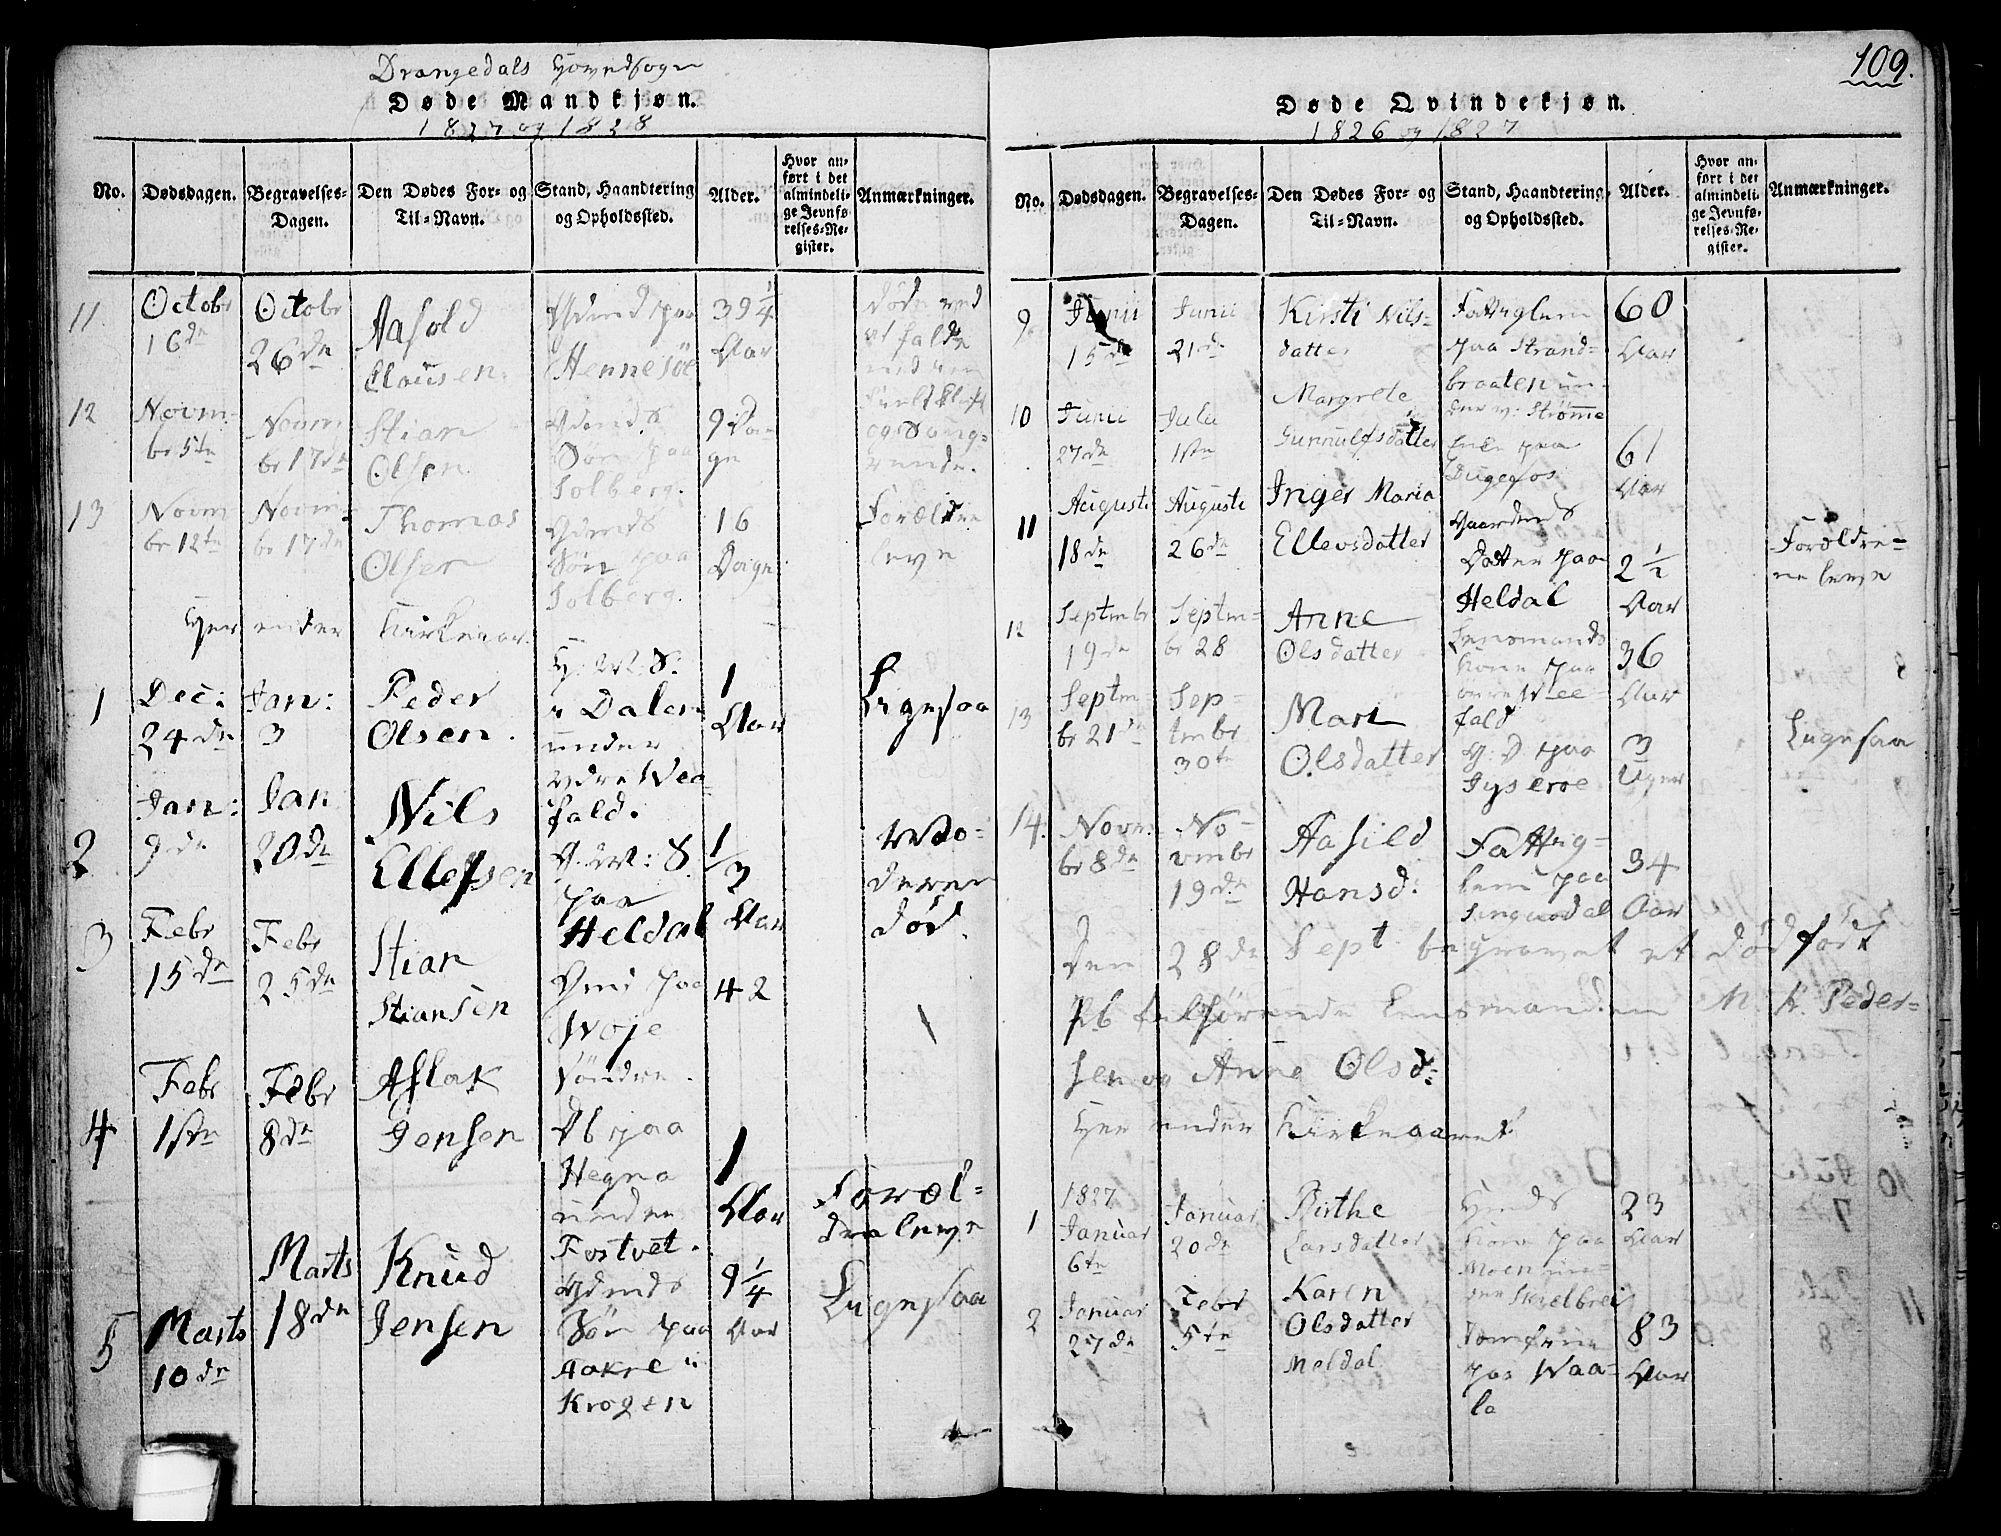 Drangedals Hovedsogn
Døde Mandkjøn.
1827 og 1828
No. Dødsdagen. Begravelses-Dagen. Den Dødes For- og Til-Navn. Stand, Haandtering og Opholdssted. Alder. Hvor anført i det almindelige Jevnførelses-Register. Anmærkninger.
11 Octobr 16de
Octobr 26de
Aasold Clausen
Gdmd paa Hennesøe
39 1/4 Aar
døde ved
at falde
12 Novmbr 5te
Novmbr 17de
Stian Olsen
Gdmds Søn paa Solberg.
9 Dage
13 Novmbr 12te
Novmbr 17de
Thomas Olsen
Gdmds Søn paa Solberg.
16 Dage
Forældre
leve
Her ender Kirkeaar.
1 Dec: 24de
Jan: 3
Peder Olsen.
H: M: S:
i Dalen
under
ydre Wee
fald.
1 Aar
Ligesaa
2 Jan: 9de
Jan 20de
Nils Ellefsen
G. M: S.
paa
Heldal
1/3 Aar
Moderen
død.
3 Febr 15de
Febr 25de
Stian Stiansen
Gmd paa
Woje
søndre
42
4 Febr 1ste
Febr 8de
Aslak Jensen
Pb paa
Hegna
under
Fostvet.
1 Aar
Foræl-
dre leve
5 Marts 10de
Marts 18de
Knud Jensen
Gdmds
Søn paa
Aakre i
Krogen
9 1/4 Aar
Ligesaa
109.
Døde Qvindekjøn.
1826 og 1827
No. Dødsdagen. Begravelses-Dagen. Den Dødes For- og Til-Navn. Stand, Haandtering og Opholdssted. Alder. Hvor anført i det almindelige Jevnførelses-Register. Anmærkninger.
9 Junii 15de
Junii 21de
Kirsti Nils-
datter
Fattiglem
paa Strand-
braaten un-
der n: Strømme
60 Aar
10 Junii 27de
Julii 1ste
Margrete
Gunnulfsdatter
Enke paa
Dugefos
61 Aar
11 Augusti 18de
Augusti 26de
Inger Maria
Ellevsdatter
Gaardmds
Datter paa
Heldal
2 1/2 Aar
Forældre-
ne leve
12 Septmbr 19de
Septm-
br 28
Anne
Olsdatter
Lensmands
Kone paa
øvre Wee-
fald
36 Aar
13 Septm-
br 21de
Sep-
tmbr
30te
Mari
Olsdatter
G: D paa
Gyseroe
3 Uger
Ligesaa
14. Novm-
br 8de
No-
vmbr
19de
Aasild
Hansd:
Fattig-
lem paa
34 Aar
Den 28de Sept begravet et dødfødt
Pb tilhørende Lensmanden M. K. Peder-
sen og Anne Olsd:
Her ender Kirkeaaret
1 1827 Januar 6te
Januar 20de
Birthe
Larsdatter
Hmds
Kone paa
Moen un-
der Skielbrei
23 Aar
2 Januar 27de
Febr 5te
Karen
Olsdatter
Meldal
Jomfrue
paa Waa-
la
83 Aar